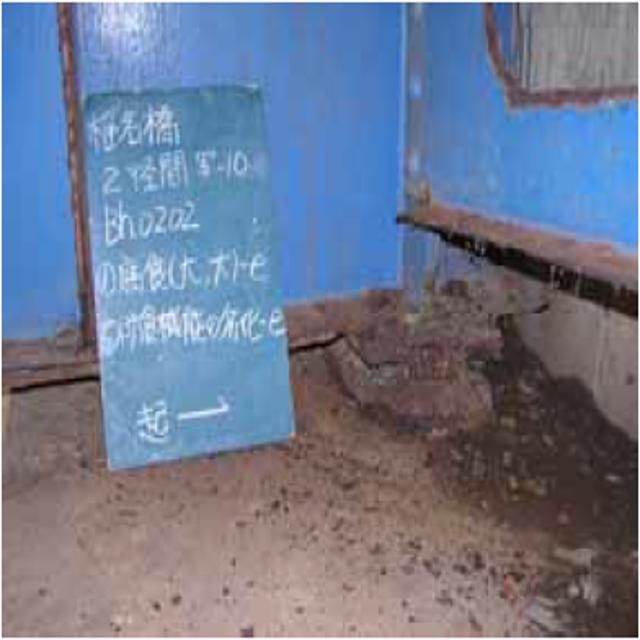 椎名橋
2径間 写-10
Bh0202
①腐食(大,大)-e
⑤防食機能の劣化-e
起